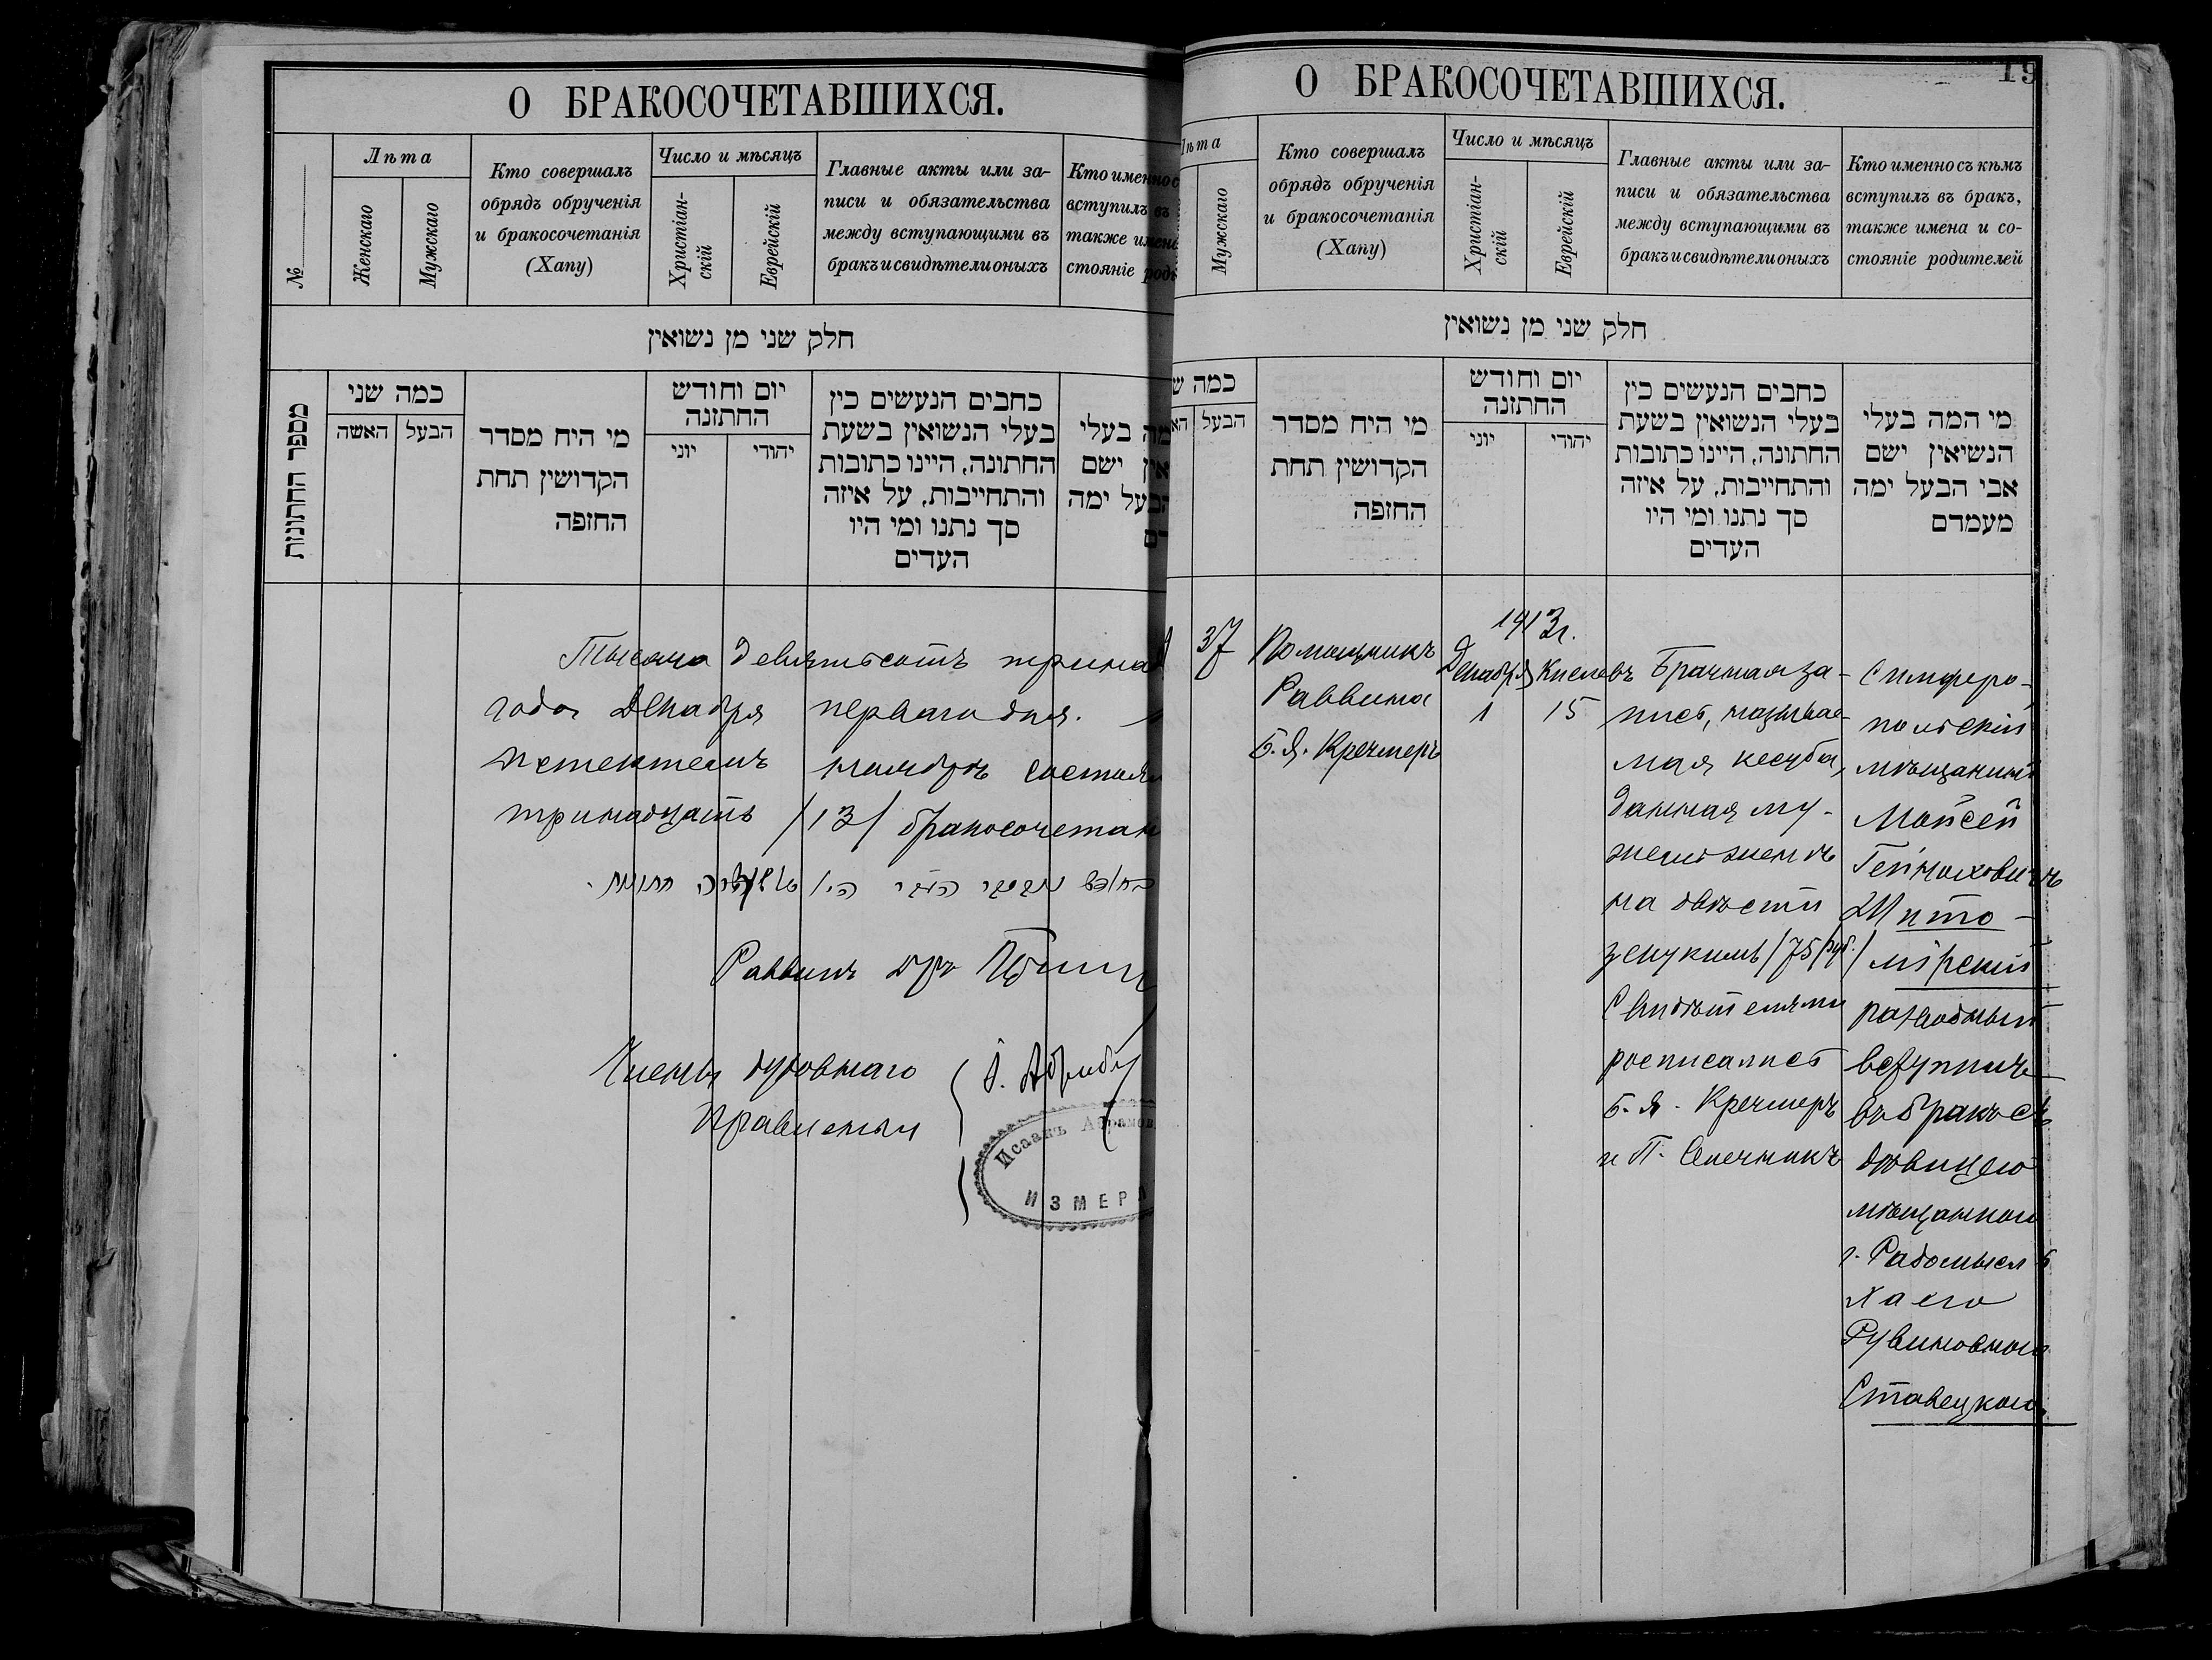 О БРАКОСОЧЕТАВШИХСЯ.
№
Лѣта
Женскаго
Мужскаго
Кто совершалъ
обрядъ обрученія
и бракосочетанія
(Хапу)
Число и мѣсяцъ
Христіан-
скій
Еврейскій
Главные акты или за-
писи и обязательства
между вступающими въ
бракъ и свидѣтели оныхъ
Кто именно с
вступилъ въ
также имена
стояніе роди
חלק שני מן נשואין
מספר החתונות
כמה שני
האשה
הבעל
מי היח מסדר
הקדושין תחת
החופה
יום וחודש
החתונה
יוני
יהודי
כתבים הנעשים בין
בעלי הנשואין בשעת
החתונה, היינו כתובות
והתחייבות, על איזה
סך נתנו ומי היו
העדים
מה בעלי
אין ישם
הבעל ימה
דם
Тысяча девятьсотъ тринад
года Декабря перваго дня.
истектемъ ноябрѣ состоял
тринадцать /13/ бракосочетан
Раввинъ д-ръ
Члены духовнаго
Правленія
Исаакъ Абрамов
ИЗМЕРЛ
19
О БРАКОСОЧЕТАВШИХСЯ.
Лѣта
Мужскаго
Кто совершалъ
обрядъ обрученія
и бракосочетанія
(Хапу)
Число и мѣсяцъ
Христіан-
скій
Еврейскій
Главные акты или за-
писи и обязательства
между вступающими въ
бракъ и свидѣтели оныхъ
Кто именно съ кѣмъ
вступилъ въ бракъ,
также имена и со-
стояніе родителей
חלק שני מן נשואין
כמה ש
הבעל
מי היח מסדר
הקדושין תחת
החופה
יום וחודש
החתונה
יוני
יהודי
כתבים הנעשים בין
בעלי הנשואין בשעת
החתונה, היינו כתובות
והתחייבות, על איזה
סך נתנו ומי היו
העדים
מי המה בעלי
הנשיאין ישם
אבי הבעל ימה
מעמדם
37
Помощникъ
Раввина
Б. Я. Кречмеръ
1913 г.
Декабря
1
Кислевъ
15
Брачная за-
пись, называе-
мая кесуба,
данная му-
жемъ женѣ
на двѣсти
зекукимъ /75 руб./
Свидѣтелями
росписались
Б. Я. Кречмеръ
и П. Спечникъ
Симферо-
польскій
мѣщанинъ
Мойсей
Гейноховичъ
Жито-
мірскій
разводный
вступилъ
въ бракъ съ
дѣвицею
мѣщанкою
г. Радомысль
Хаею
Рувиновною
Ставецкою.